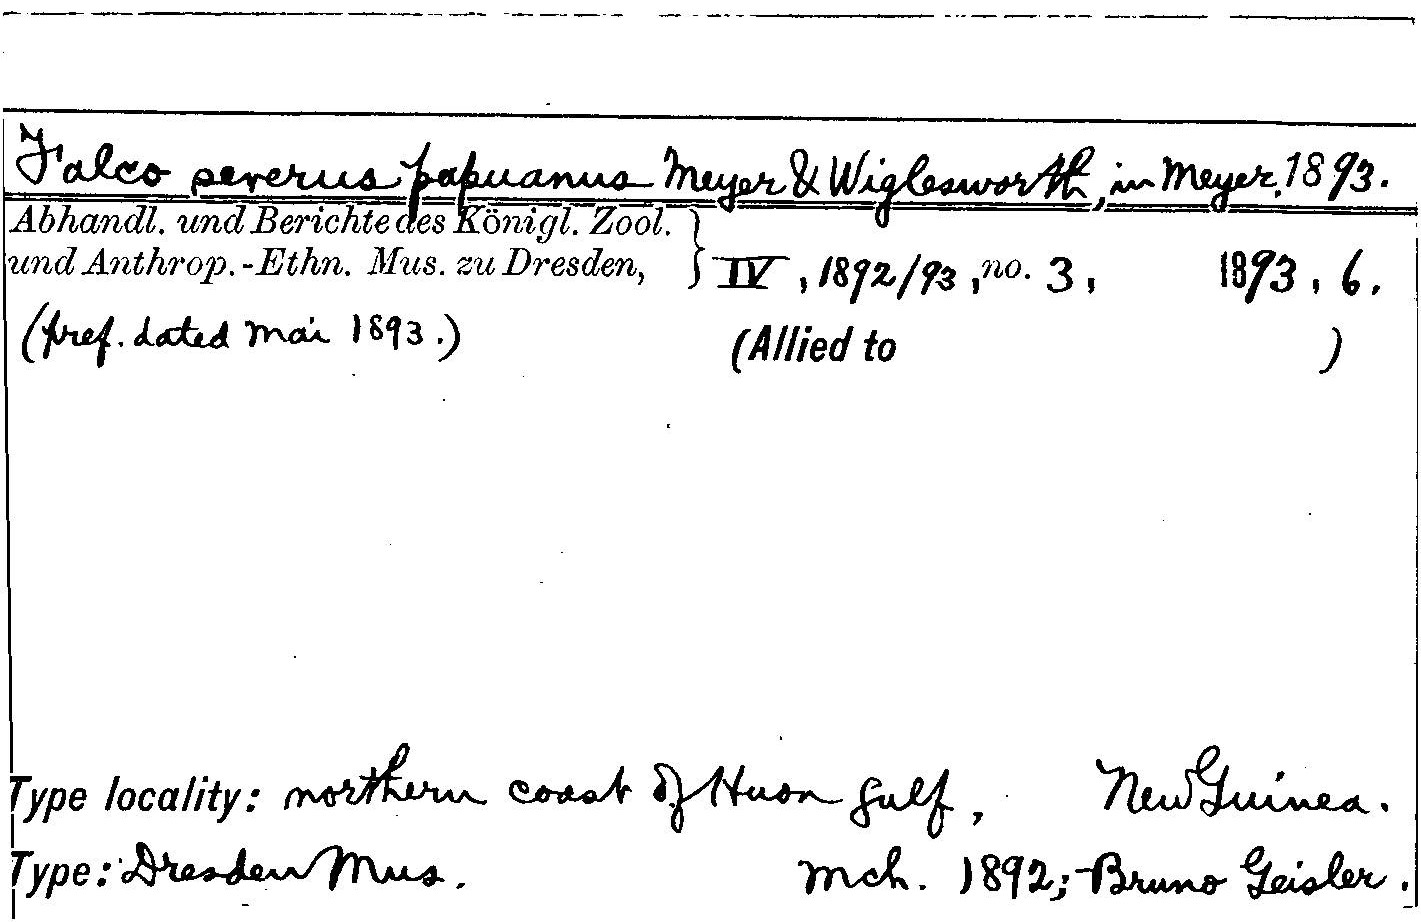 Falco severus papuanus Meyer & Wiglesworth, in Meyer, 1893.
Abhandl. und Berichte des Königl. Zool.
und Anthrop.-Ethn. Mus. zu Dresden, } IV, 1892/93, no. 3, 1893, 6.
(pref. dated Mai 1893.) (Allied to )
Type locality: northern coast of Huon Gulf, New Guinea.
Type: Dresden Mus. Mch. 1892; Bruno Geisler.